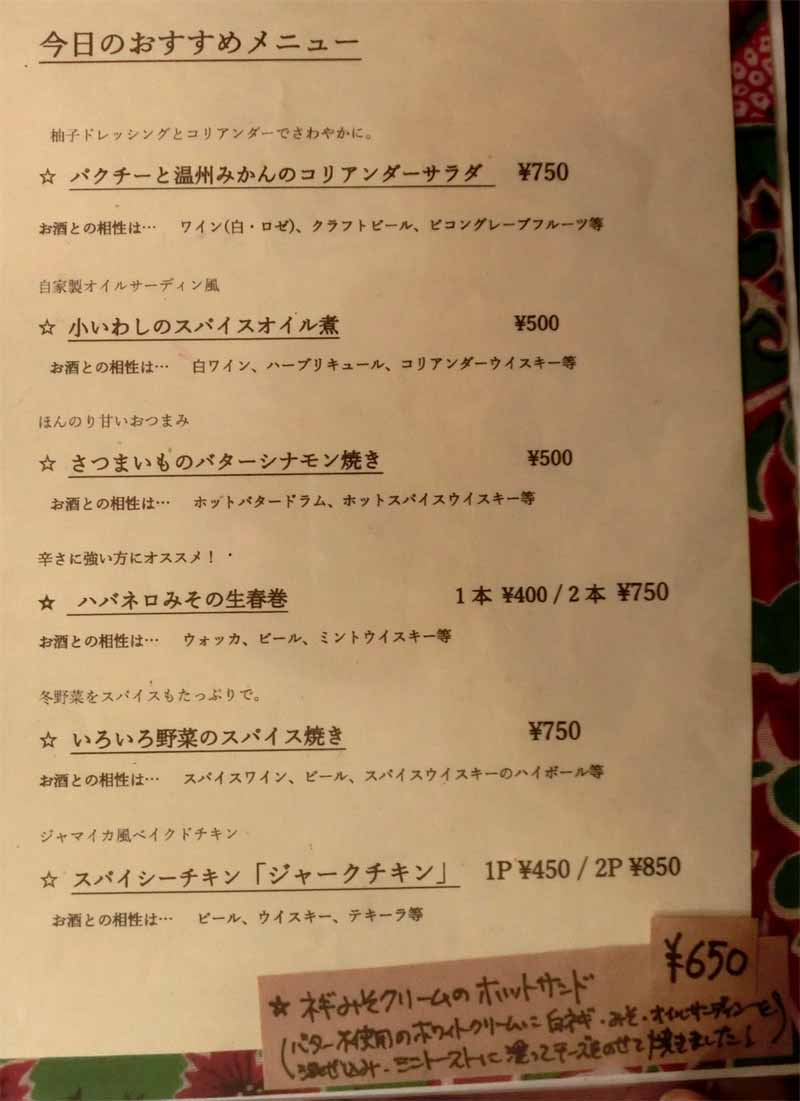 今日のおすすめメニュー
柚子ドレッシングとコリアンダーでさわやかに。
☆ パクチーと温州みかんのコリアンダーサラダ ¥750
お酒との相性は… ワイン(白・ロゼ)、クラフトビール、ピコングレープフルーツ等
自家製オイルサーディン風
☆ 小いわしのスパイスオイル煮 ¥500
お酒との相性は… 白ワイン、ハーブリキュール、コリアンダーウイスキー等
ほんのり甘いおつまみ
☆ さつまいものバターシナモン焼き ¥500
お酒との相性は… ホットバタードラム、ホットスパイスウイスキー等
辛さに強い方にオススメ!
☆ ハバネロみその生春巻 1本 ¥400 / 2本 ¥750
お酒との相性は… ウォッカ、ビール、ミントウイスキー等
冬野菜をスパイスもたっぷりで。
☆ いろいろ野菜のスパイス焼き ¥750
お酒との相性は… スパイスワイン、ビール、スパイスウイスキーのハイボール等
ジャマイカ風ベイクドチキン
☆ スパイシーチキン「ジャークチキン」 1P ¥450 / 2P ¥850
お酒との相性は… ビール、ウイスキー、テキーラ等
¥650
★ ネギみそクリームのホットサンド
(バター不使用のホワイトクリームに白ネギ・みそ・オイルサーディンを
混ぜ込み、ミニトーストに塗ってチーズをのせて焼きました)